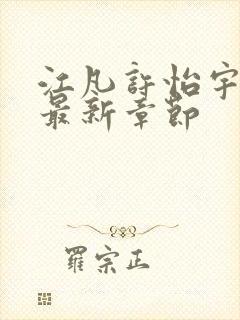 江凡許怡宇
最新章節
羅宗正